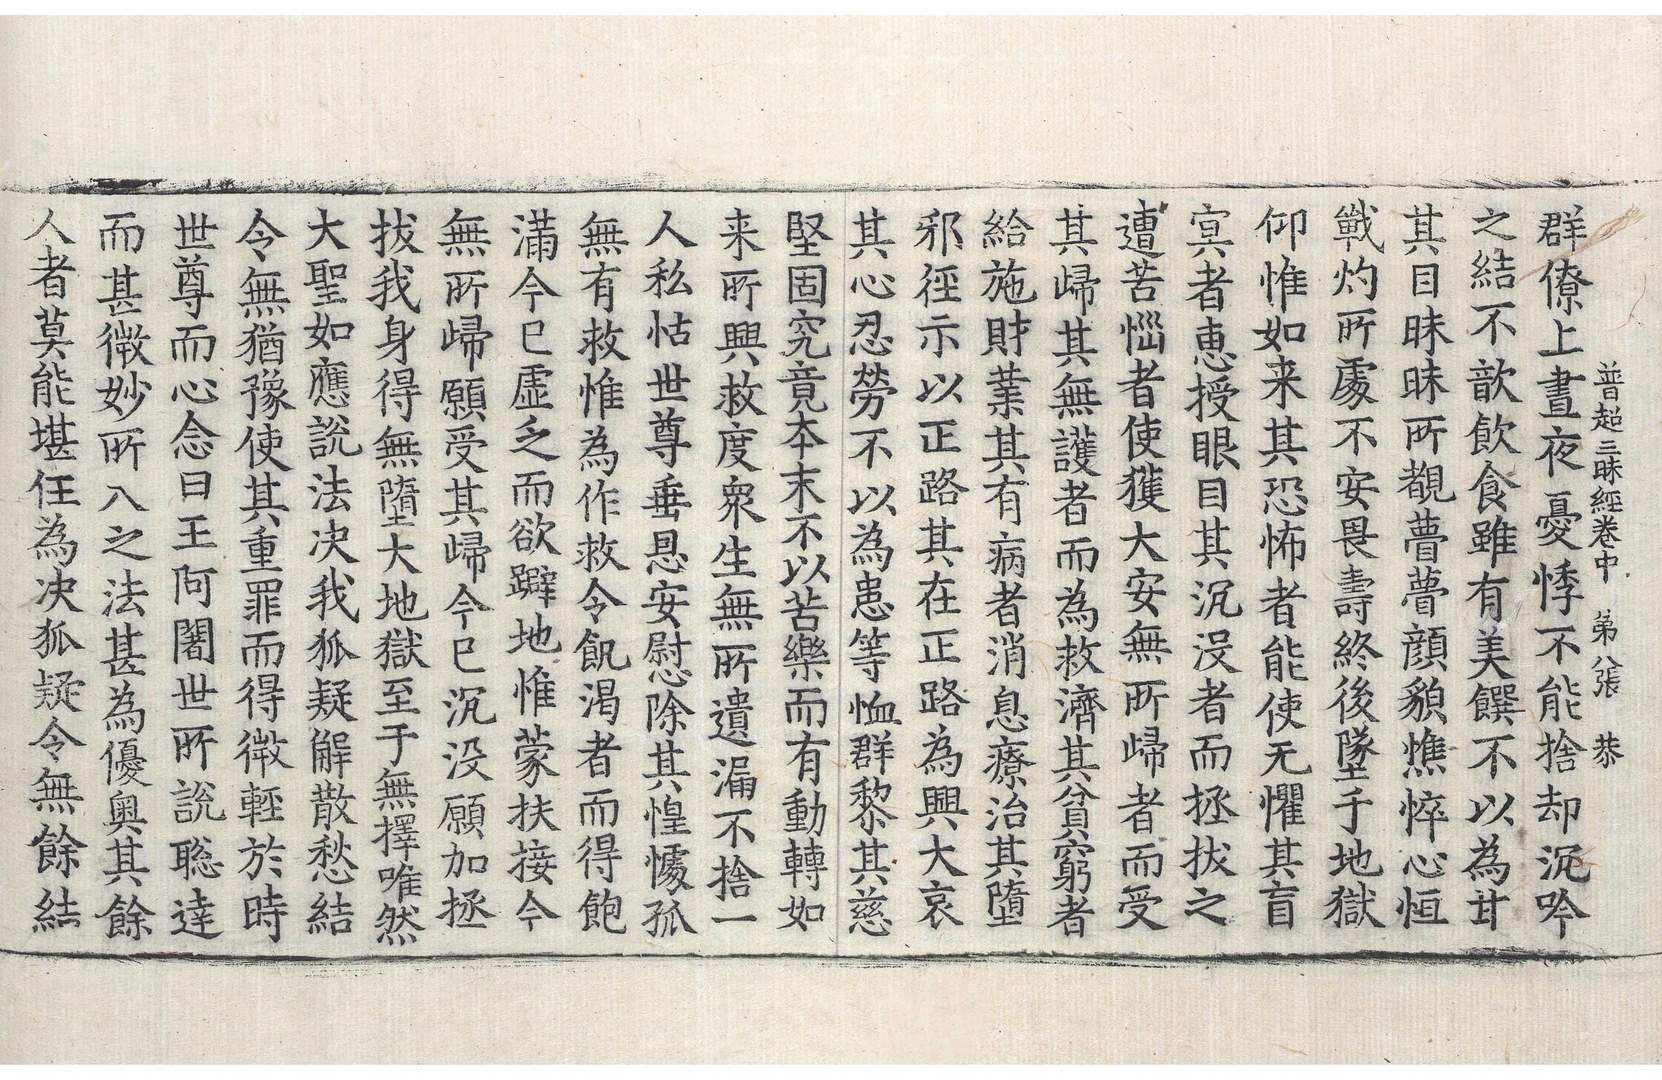 普超三昧經卷中 第八張 恭
群僚上晝夜憂悸不能捨却沉吟
之結不歆飲食雖有美饌不以為甘
其目昧昧所覩瞢瞢顏貌憔悴心恒
戰灼所處不安畏壽終後墜于地獄
仰惟如来其恐怖者能使无懼其盲
冥者恵授眼目其沉没者而拯拔之
遭苦惱者使獲大安無所歸者而受
其歸其無護者而為救濟其貧窮者
給施財業其有病者消息療治其墮
邪徑示以正路其在正路為興大哀
其心忍勞不以為患等恤群黎其慈
堅固究竟本末不以苦樂而有動轉如
来所興救度衆生無所遺漏不捨一
人私怙世尊垂恩安慰除其惶懅孤
無有救惟為作救令飢渴者而得飽
滿今已虛乏而欲躃地惟蒙扶接今
無所歸願受其歸今已沉没願加拯
拔我身得無墮大地獄至于無擇唯然
大聖如應說法決我狐疑解散愁結
令無猶豫使其重罪而得微輕於時
世尊而心念曰王阿闍世所說聡達
而甚微妙所入之法甚為優奧其餘
人者莫能堪任為决狐疑令無餘結